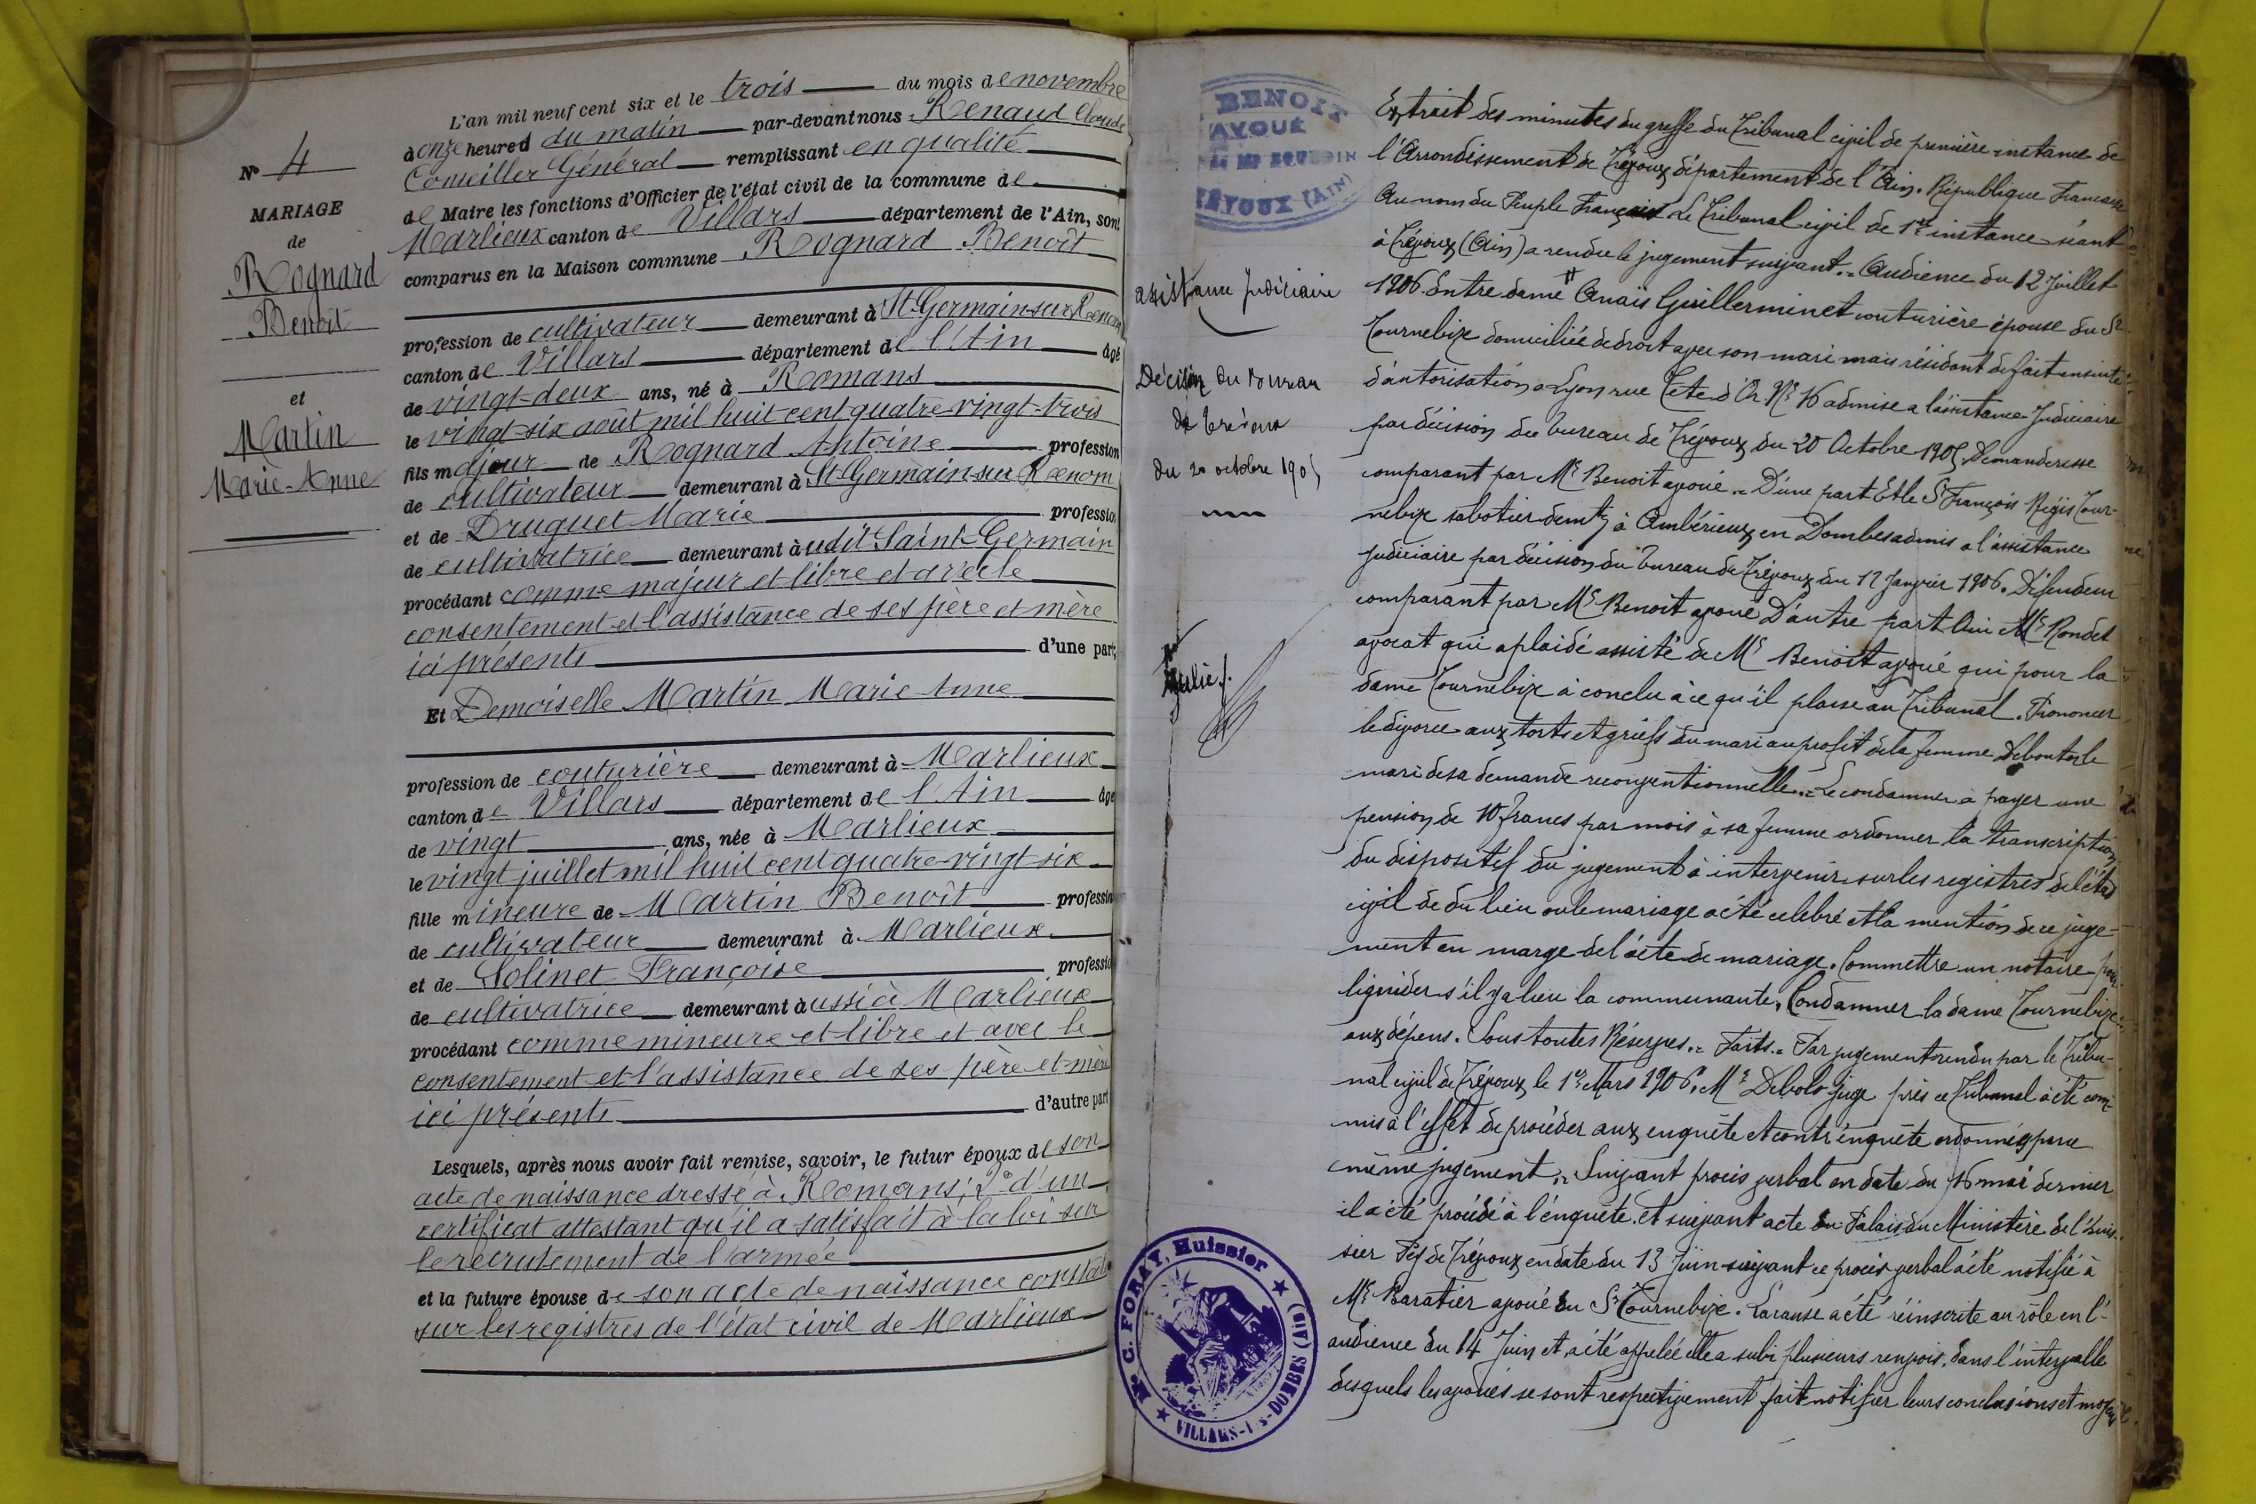 Nº 4
MARIAGE
de
Rognard
Benoit
et
Martin
Marie-Anne
L'an mil neuf cent six et le trois du mois de novembre
à onze heures du matin par-devant nous Renaud Claude
Conseiller Général remplissant en qualité
de Maire les fonctions d'Officier de l'état civil de la commune de
Marlieux canton de Villars département de l'Ain, sont
comparus en la Maison commune Rognard Benoît
profession de cultivateur demeurant à St-Germain-sur-Renom
canton de Villars département de l'Ain âgé
de vingt-deux ans, né à Romans
le vingt-six août mil huit cent quatre-vingt-trois
fils majeur de Rognard Antoine profession
de cultivateur demeurant à St-Germain-sur Renom
et de Druguet Marie profession
de cultivatrice demeurant à udit Saint-Germain
procédant comme majeur et libre et avec le
consentement et l'assistance de ses père et mère
ici présents d'une part,
Et Demoiselle Martin Marie Anne
profession de couturière demeurant à Marlieux
canton de Villars département de l'Ain âgé
de vingt ans, née à Marlieux
le vingt juillet mil huit cent quatre-vingt-six
fille mineure de Martin Benoît profession
de cultivateur demeurant à Marlieux
et de Solinet Françoise profession
de cultivatrice demeurant aussi à Marlieux
procédant comme mineure et libre et avec le
consentement et l'assistance de ses père et mère
ici présents d'autre part
Lesquels, après nous avoir fait remise, savoir, le futur époux de son
acte de naissance dressé à Romans; 2º d'un
certificat attestant qu'il a satisfait à la loi sur
le recrutement de l'armée
et la future épouse de son acte de naissance constaté
sur les registres de l'état civil de Marlieux
BENOIT
AVOUÉ
TRÉVOUX (AIN)
assistance judiciaire
Décision du bureau
de Trévoux
du 20 octobre 1905
Extrait des minutes du greffe du Tribunal civil de première instance de
l'Arrondissement de Trévoux département de l'Ain. République Française
Au nom du Peuple Français Le Tribunal civil de 1re instance séant
à Trévoux (Ain) a rendu le jugement suivant. = Audience du 12 Juillet
1906. Entre dame Anaïs Guillerminet couturière épouse du Sr
Tournebize domiciliée de droit avec son mari mais résidant de fait ensuite
d'autorisation à Lyon rue Tete d'Or Nº 16 admise a l'assistance Judiciaire
par décision du bureau de Trévoux du 20 Octobre 1905. Demanderesse
comparant par Me Benoit avoué. = D'une part Et le Sr François Régis Tour-
nebize sabotier demt à Ambérieux en Dombes admis a l'assistance
judiciaire par décision du bureau de Trévoux du 17 Janvier 1906. Défendeur
comparant par Me Benoit avoué D'autre part Oui Me Rondet
avocat qui a plaidé assisté de Me Benoit avoué qui pour la
dame Tournebize a conclu à ce qu'il plaise au Tribunal. Prononcer
le divorce aux torts et griefs du mari au profit de la femme Débouter le
mari de sa demande reconventionnelle. = Le condamner à payer une
pension de 10 francs par mois à sa femme ordonner la transcription
du dispositif du jugement à intervenir sur les registres de l'état
civil de du lieu ou le mariage a été celebré et la mention de ce juge-
ment en marge de l'acte de mariage. Commettre un notaire pour
liquider s'il y a lieu la communauté, Condamner la dame Tournebize
aux dépens. Sous toutes Réserves. = Faits. = Par jugement rendu par le Tribu-
nal civil de Trévoux le 1er Mars 1906, Mr Debolo juge près ce Tribunal a été com-
mis à l'effet de procéder aux enquête et contr'enquête ordonnées par ce
même jugement. = Suivant procès verbal en date du 16 mai dernier
il a été procédé à l'enquête. et suivant acte du Palais du Ministère de l'huis-
sier de Trévoux en date du 13 Juin suivant ce procès verbal a été notifié à
Me Baratier avoué du Sr Tournebize. La cause a été réinscrite au rôle en l'-
audience du 14 Juin et a été appelée elle a subi plusieurs renvois, dans l'intervalle
desquels les avoués se sont respectivement fait notifier leurs conclusions et moyens
Me C. FORAY, Huissier
VILLARS-les-DOMBES (AIN)